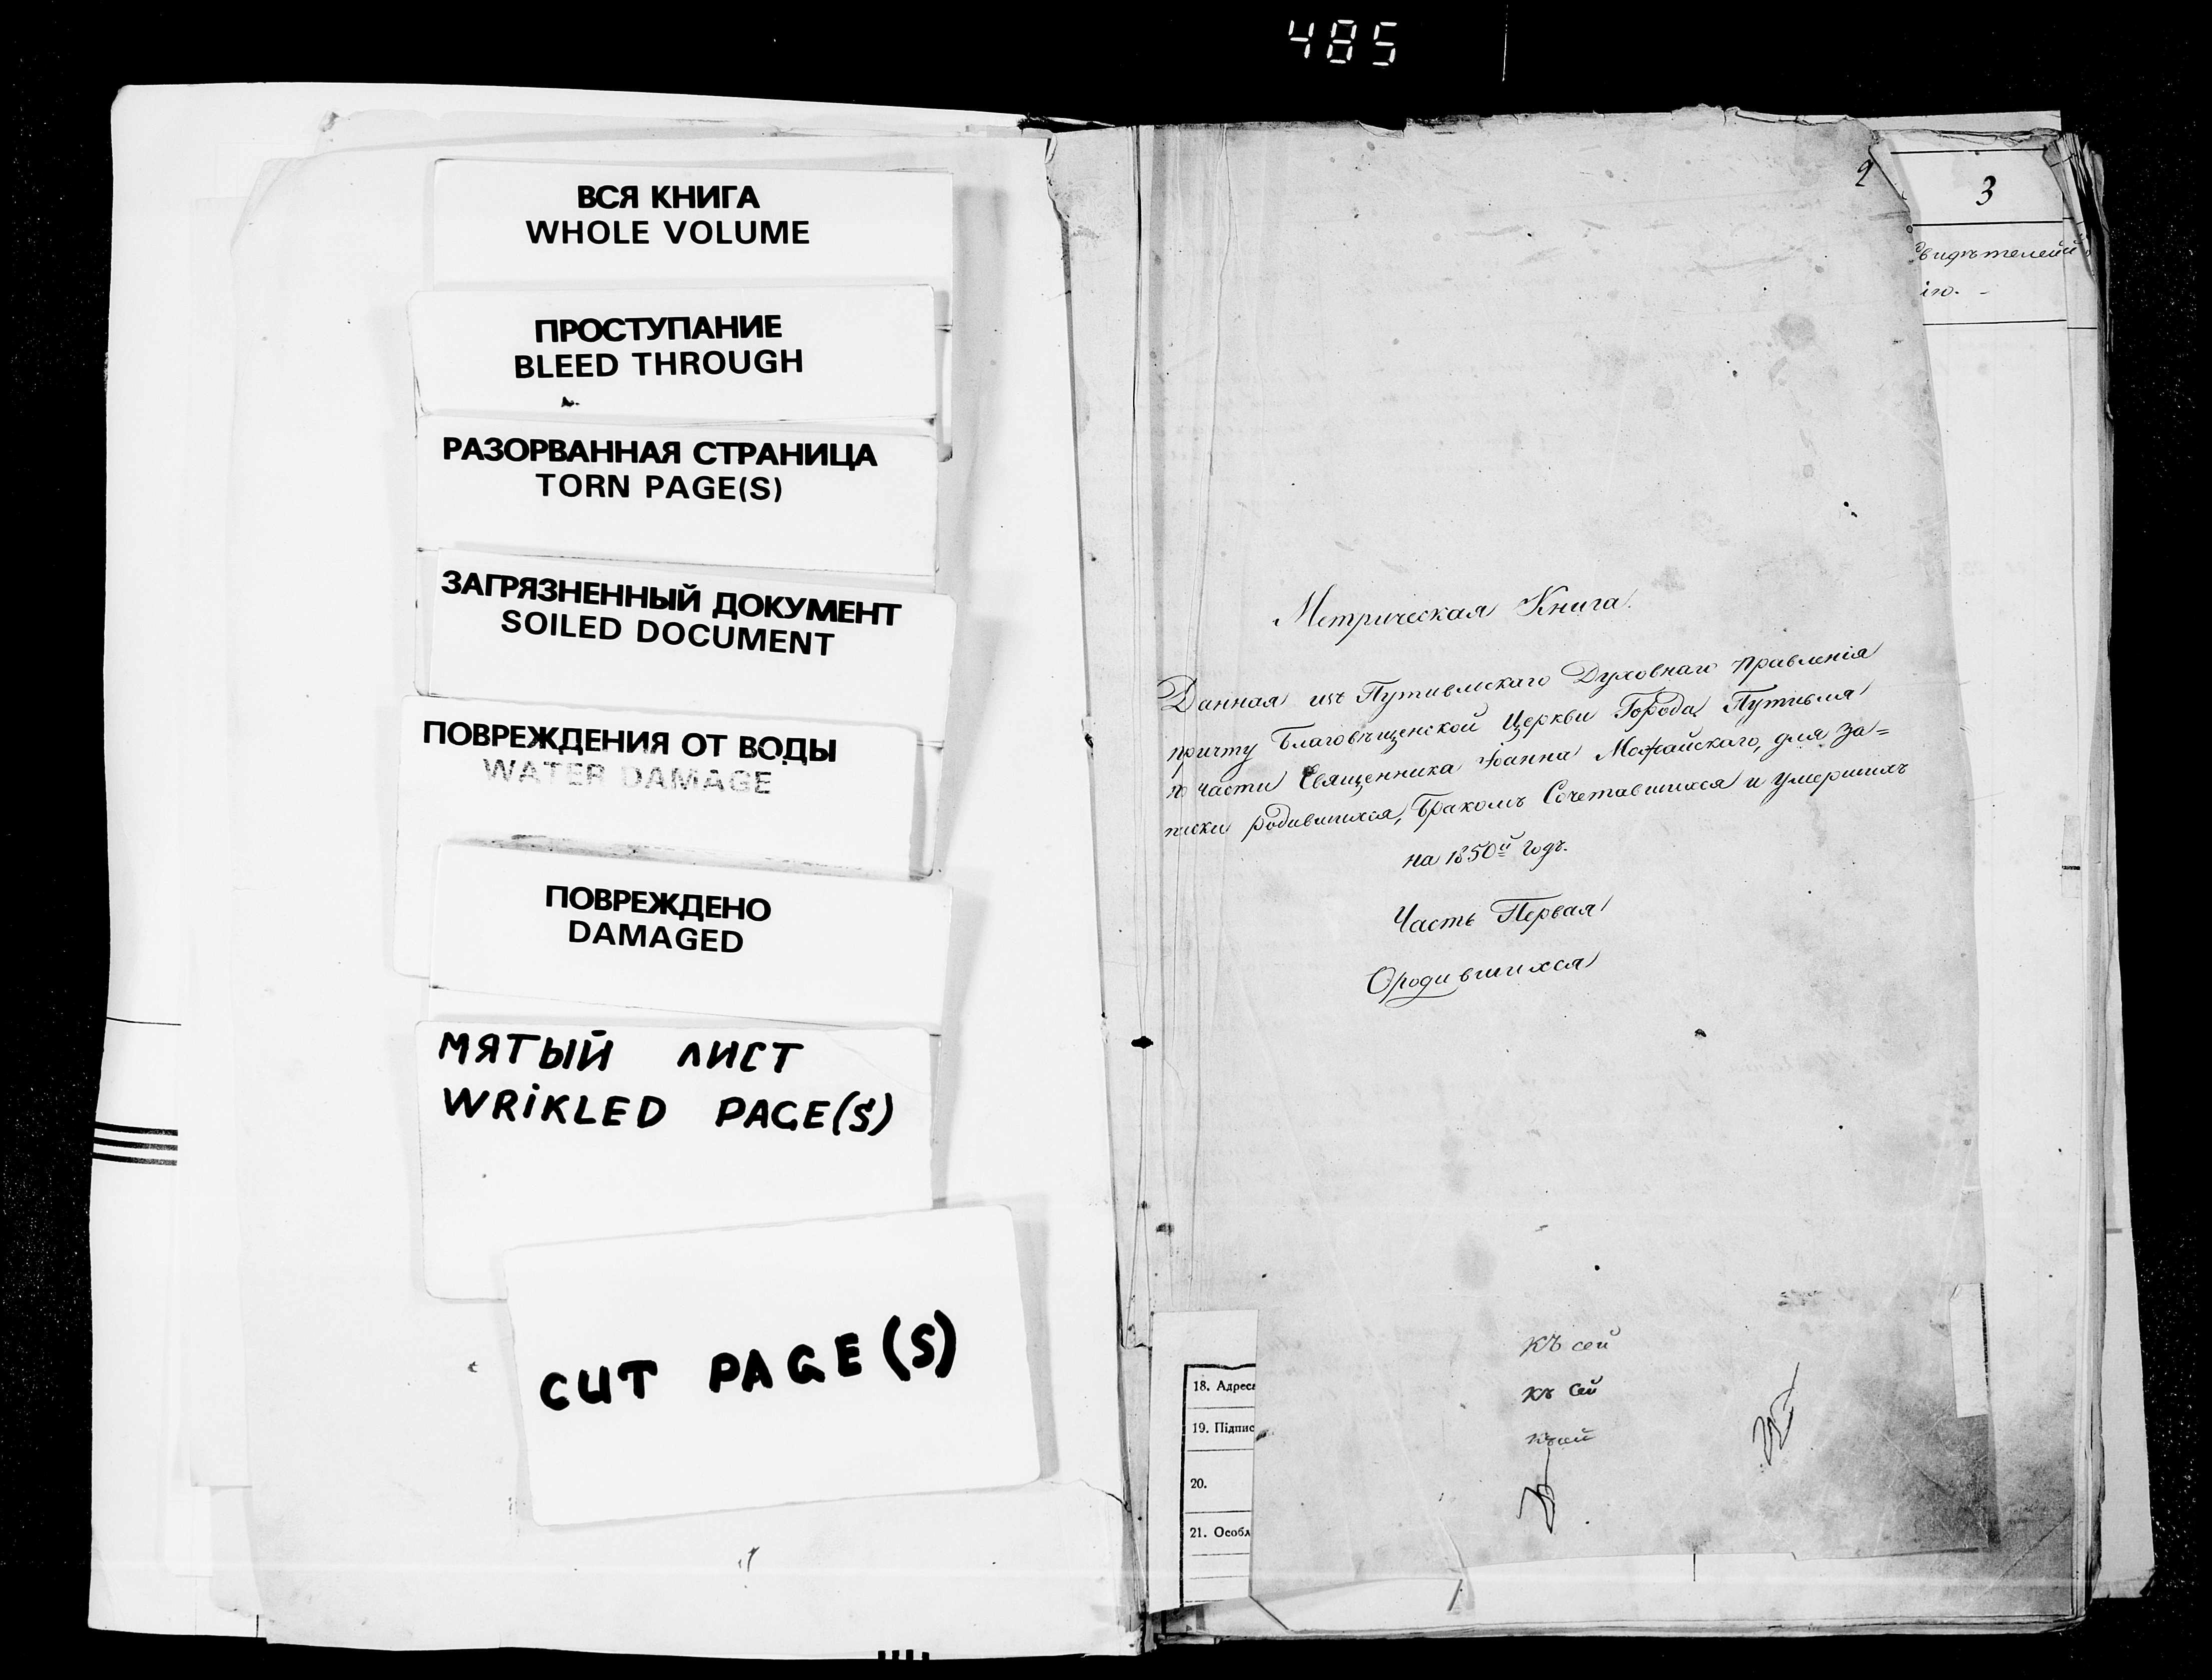 485
ВСЯ КНИГА
WHOLE VOLUME
ПРОСТУПАНИЕ
BLEED THROUGH
РАЗОРВАННАЯ СТРАНИЦА
TORN PAGE(S)
ЗАГРЯЗНЕННЫЙ ДОКУМЕНТ
SOILED DOCUMENT
ПОВРЕЖДЕНИЯ ОТ ВОДЫ
WATER DAMAGE
ПОВРЕЖДЕНО
DAMAGED
МЯТЫЙ ЛИСТ
WRIKLED PAGE(S)
CUT PAGE(S)
2
3
видѣтелей
ію.
Метрическая Книга.
Данная изъ Путивльскаго Духовнаго правленія
причту Благовѣщенской Церкви Города Путивля
по части Священника Іоанна Можайскаго, для за=
писки родившихся, Бракомъ Сочетавшихся и умершихъ
на 1850й Годъ.
Часть Первая
О родившихся
Къ сей
Къ Сей
Къ сей
18. Адреса
19. Підпис
20.
21. Особл